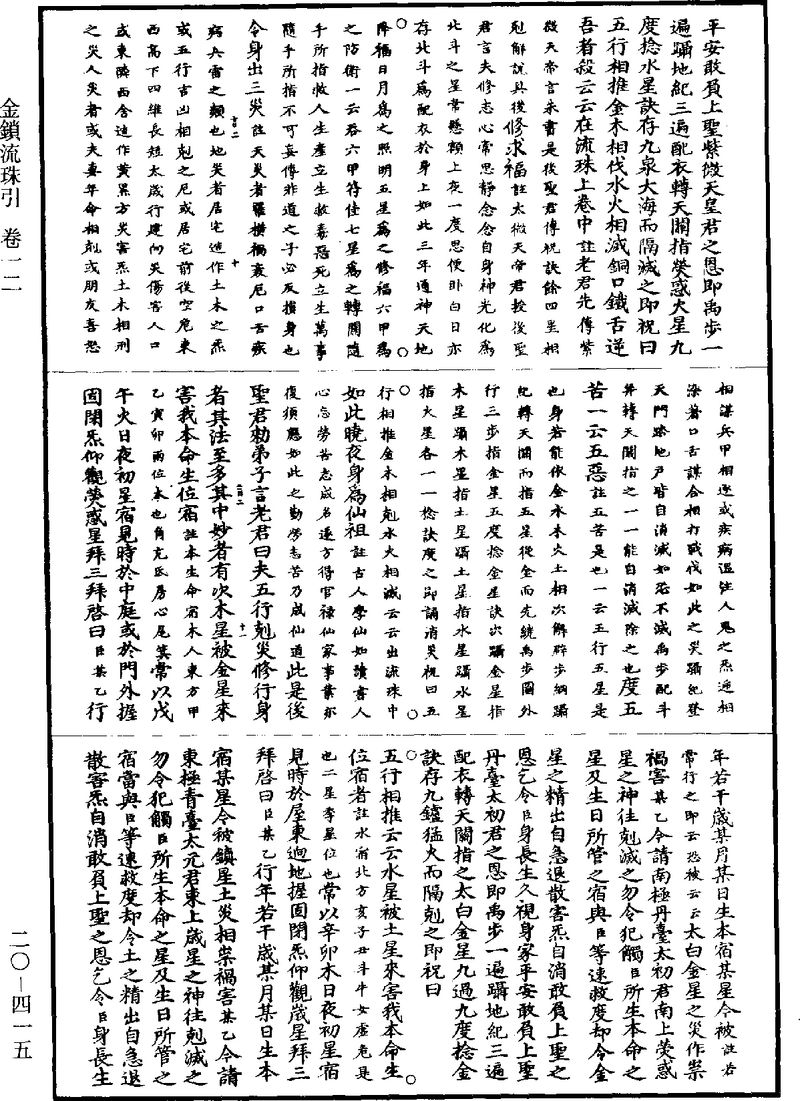 金鎖流珠引　卷一二
二〇—四一五
平安敢負上聖紫微天皇君之恩即禹步一
遍躡地紀三遍配衣轉天關指熒惑火星九
度捻水星訣存九泉大海而隔滅之即祝曰
五行相推金木相伐水火相滅銅口鐵舌逆
吾者殺云云在流珠上卷中註老君先傳紫
微天帝言朱書是後聖君傳祝訣餘四星相
剋解說具後修求福註太微天帝君授後聖
君言夫修志心常思靜念念自身神光化爲
北斗之星常懸頭上夜一度思便卧白日亦
存北斗爲配衣於身上如此三年通神天地
降福日月爲之照明五星爲之修福六甲爲
之防衛一云吞六甲符佳七星爲之轉關隨
手所指救人生產立生救毒惡死立生萬事
隨手所指不可妄傳非道之子必反損身也
令身出三災註天災者羅橫禍衰厄口舌疾
病兵雷之類也地災者居宅造作土木之炁
或五行吉凶相剋之厄或居宅前後空危東
西高下四維長短太歲行建向災傷害人口
或東隣西舍造作黃黑方災害炁土木相刑
之災人災者或夫妻年命相剋或朋友喜怒
相謀兵甲相逐或疾病溫疰人鬼之炁逓相
染著口舌謀合相打戰伐如此之災躡紀登
天門踏地戶皆自消滅如恐不滅禹步配斗
并轉天關指之一一能自消滅除之也度五
苦一云五惡註五苦是也一云五行五星是
也身若能依金水木火土相次解辟步綱躡
紀轉天關而指五星從金而先繞禹步圈外
行三步指金星五度捻金星訣次躡金星指
木星躡木星指土星躡土星指水星躡水星
指火星各一一捻訣度之即誦消災祝曰五
行相推金木相剋水火相滅云云出流珠中
如此曉夜身爲仙祖註古人學仙如讀書人
心忘勞苦志成名遂方得官祿仙家事業亦
復須應如此之勤勞志苦乃成仙道此是後
聖君勑弟子言老君曰夫五行剋災修行身
者其法至多其中妙者有次木星被金星來
害我本命生位宿註本生命宿木人東方甲
乙寅卯兩位木也角亢氐房心尾箕常以戊
午火日夜初星宿見時於中庭或於門外握
固閉炁仰觀熒惑星拜三拜啓曰臣某乙行
年若干歲某月某日生本宿某星今被註若
常行之即云恐被云云太白金星之災作祟
禍害某乙今請南極丹臺太初君南上熒惑
星之神往剋滅之勿令犯觸臣所生本命之
星及生日所管之宿與臣等速救度却令金
星之精出自急退散害炁自消敢負上聖之
恩乞令臣身長生久視身家平安敢負上聖
丹臺太初君之恩即禹步一遍躡地紀三遍
配衣轉天關指之太白金星九過九度捻金
訣存九鑪猛火而隔剋之即祝曰
五行相推云云水星被土星來害我本命生
位宿者註水宿北方亥子丑斗牛女虛危是
也二星孛星位也常以辛卯木日夜初星宿
見時於屋東逈地握固閉炁仰觀歲星拜三
拜啓曰臣某乙行年若干歲某月某日生本
宿某星今被鎮星土災相祟禍害某乙今請
東極青臺太元君東上歲星之神往剋滅之
勿令犯觸臣所生本命之星及生日所管之
宿當與臣等速救度却令土之精出自急退
散害炁自消敢負上聖之恩乞令臣身長生